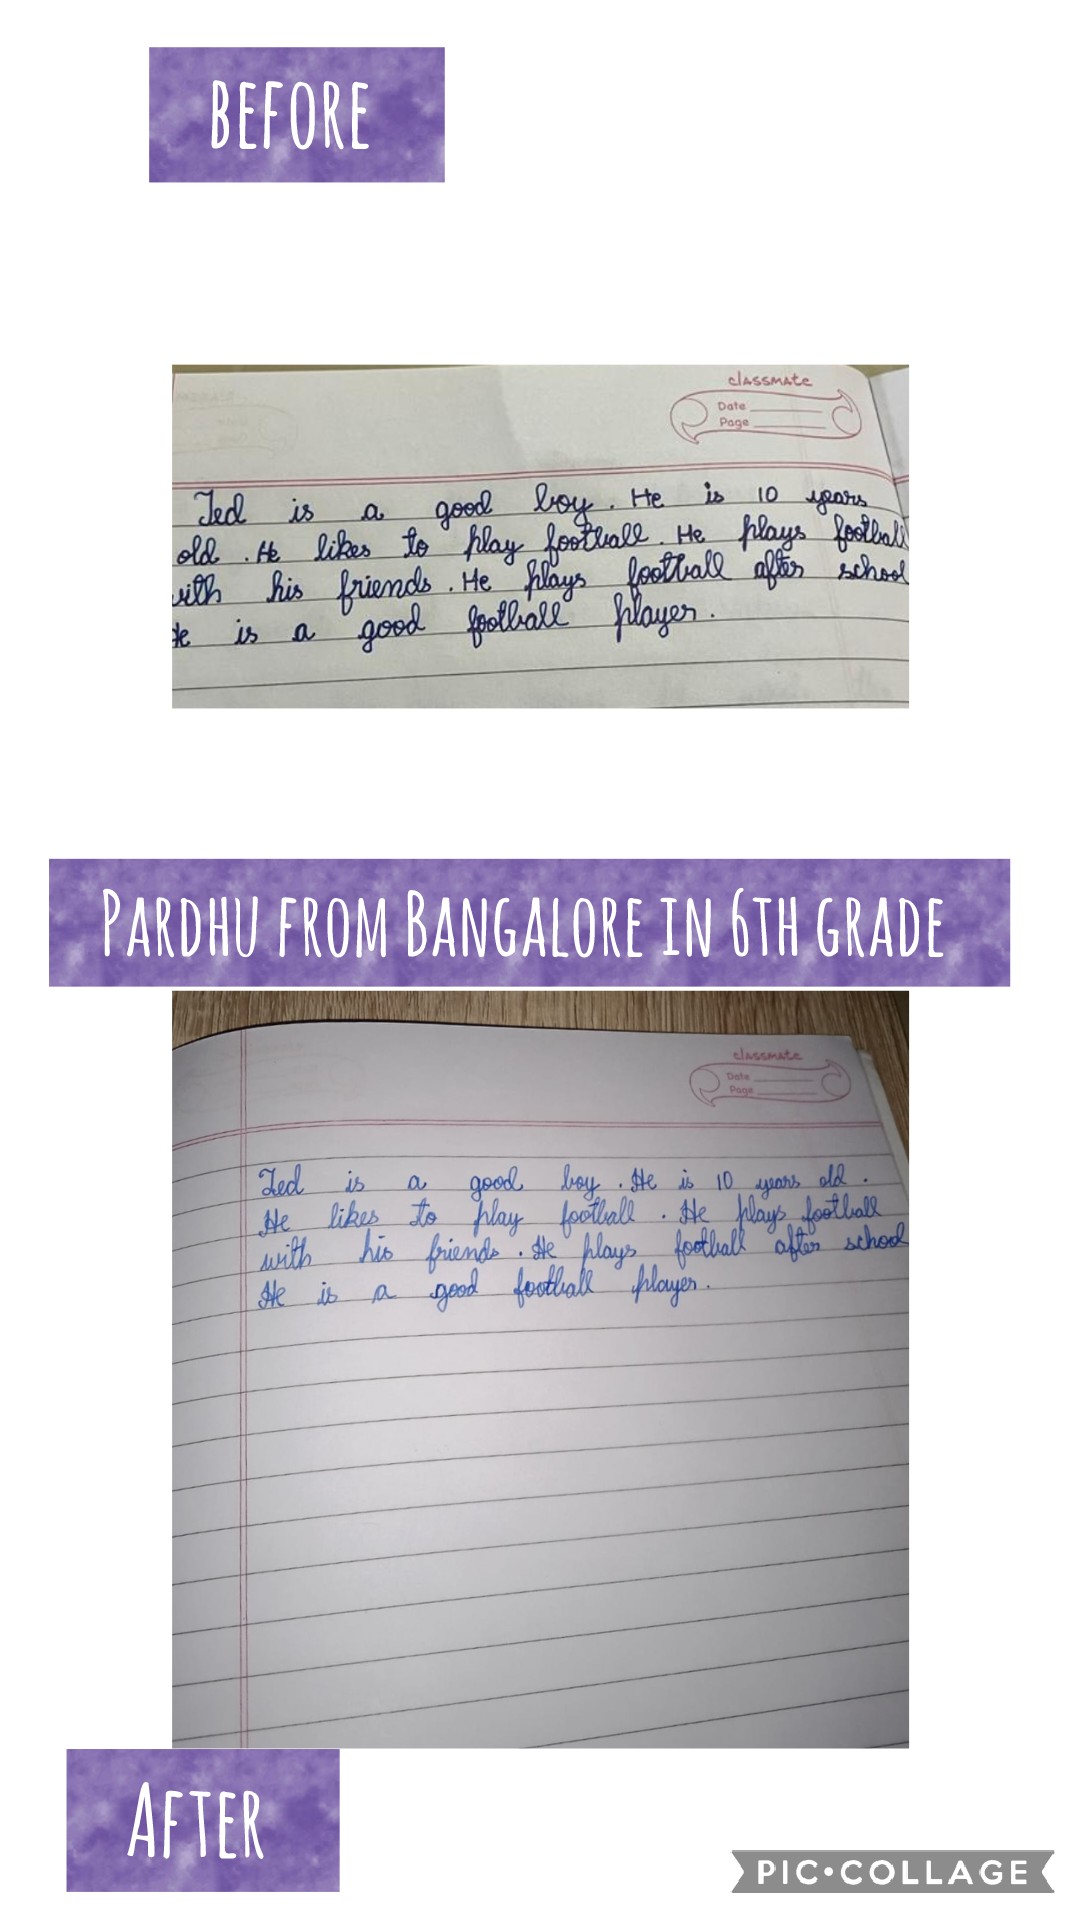 BEFORE
classmate
Date
Page
Ted is a good boy. He is 10 years
old. He likes to play football. He plays football
with his friends. He plays football after school
He is a good football player.
PARDHU FROM BANGALORE IN 6TH GRADE
classmate
Date
Page
Ted is a good boy. He is 10 years old.
He likes to play football. He plays football
with his friends. He plays football after school
He is a good football player.
AFTER
PIC•COLLAGE